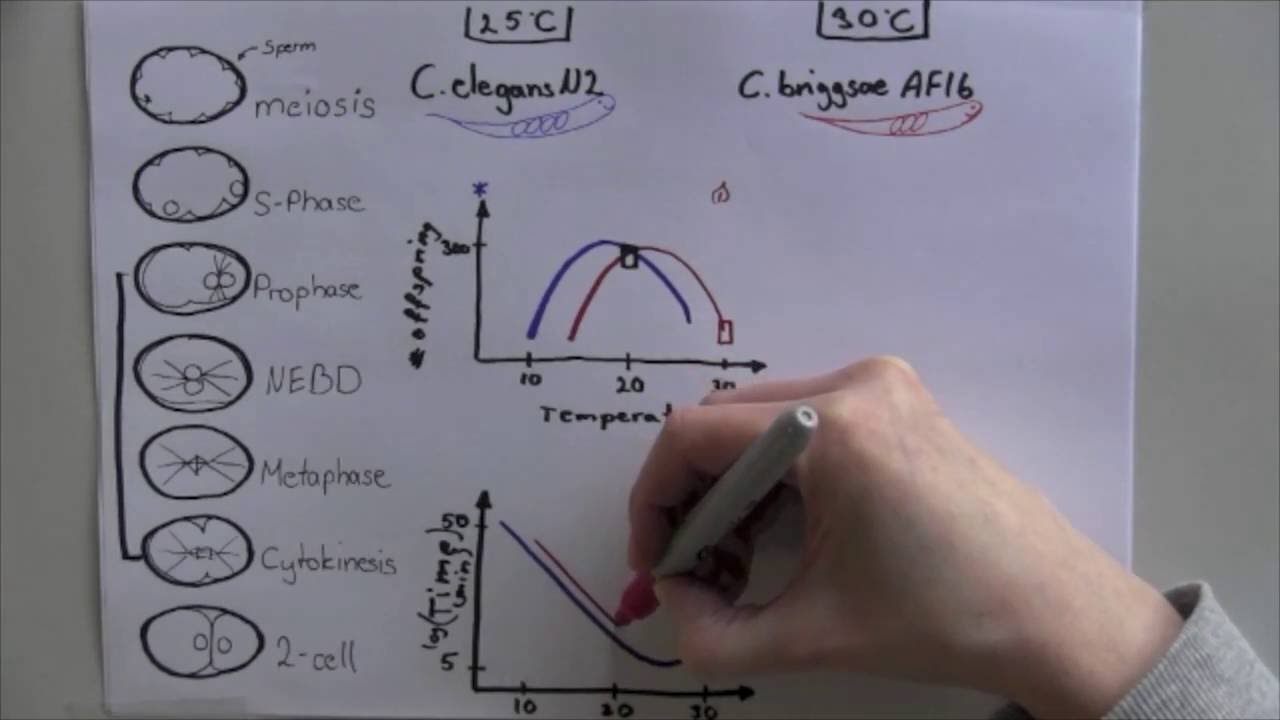 25°C
30°C
Sperm
meiosis
C. elegans N2
C. briggsae AF16
S-Phase
Prophase
NEBD
Metaphase
Cytokinesis
2-cell
# offspring
300
10 20 30
Temperat
log(Time)
(min)
50
5
10 20 30